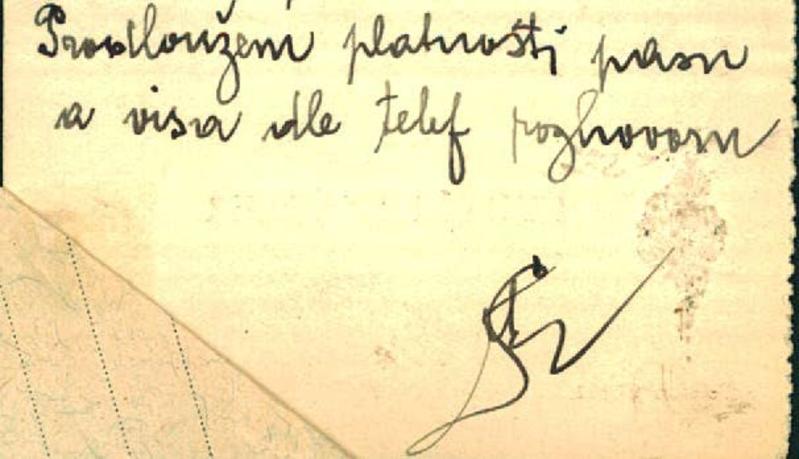 Prodloužení platnosti pasu
a visa dle telef rozhovoru